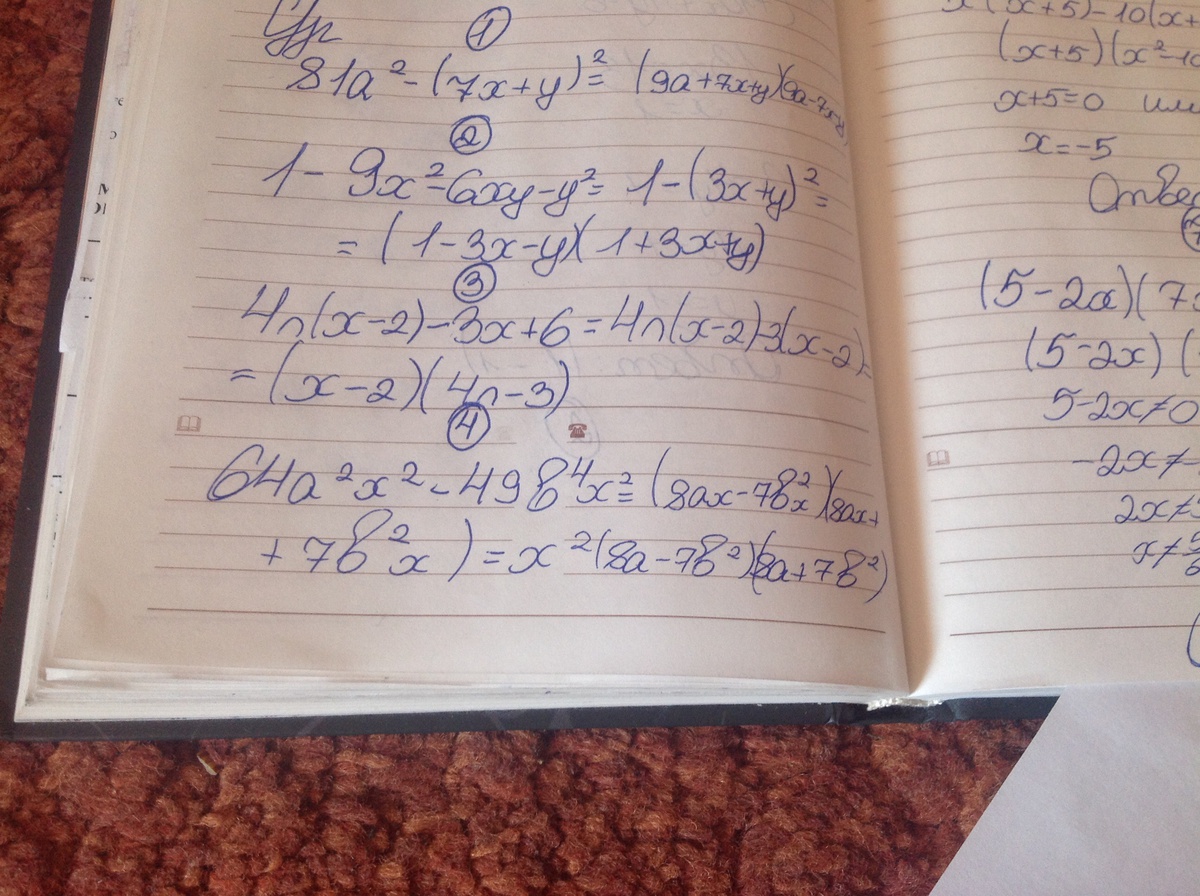 ①
81a² - (7x+y)² = (9a+7x+y)(9a-7x-y)
②
1 - 9x² - 6xy - y² = 1 - (3x+y)² =
= (1-3x-y)(1+3x+y)
③
4n(x-2) - 3x + 6 = 4n(x-2) - 3(x-2) =
= (x-2)(4n-3)
④
64a²x² - 49b⁴x² = (8ax - 7b²x)(8ax+
+ 7b²x) = x²(8a-7b²)(8a+7b²)
(x+5) - 10(x+
(x+5)(x²-10
x+5=0 или
x=-5
Ответ
(5-2x)(7
(5-2x)(
5-2x≠0
-2x≠-
2x≠5
x≠